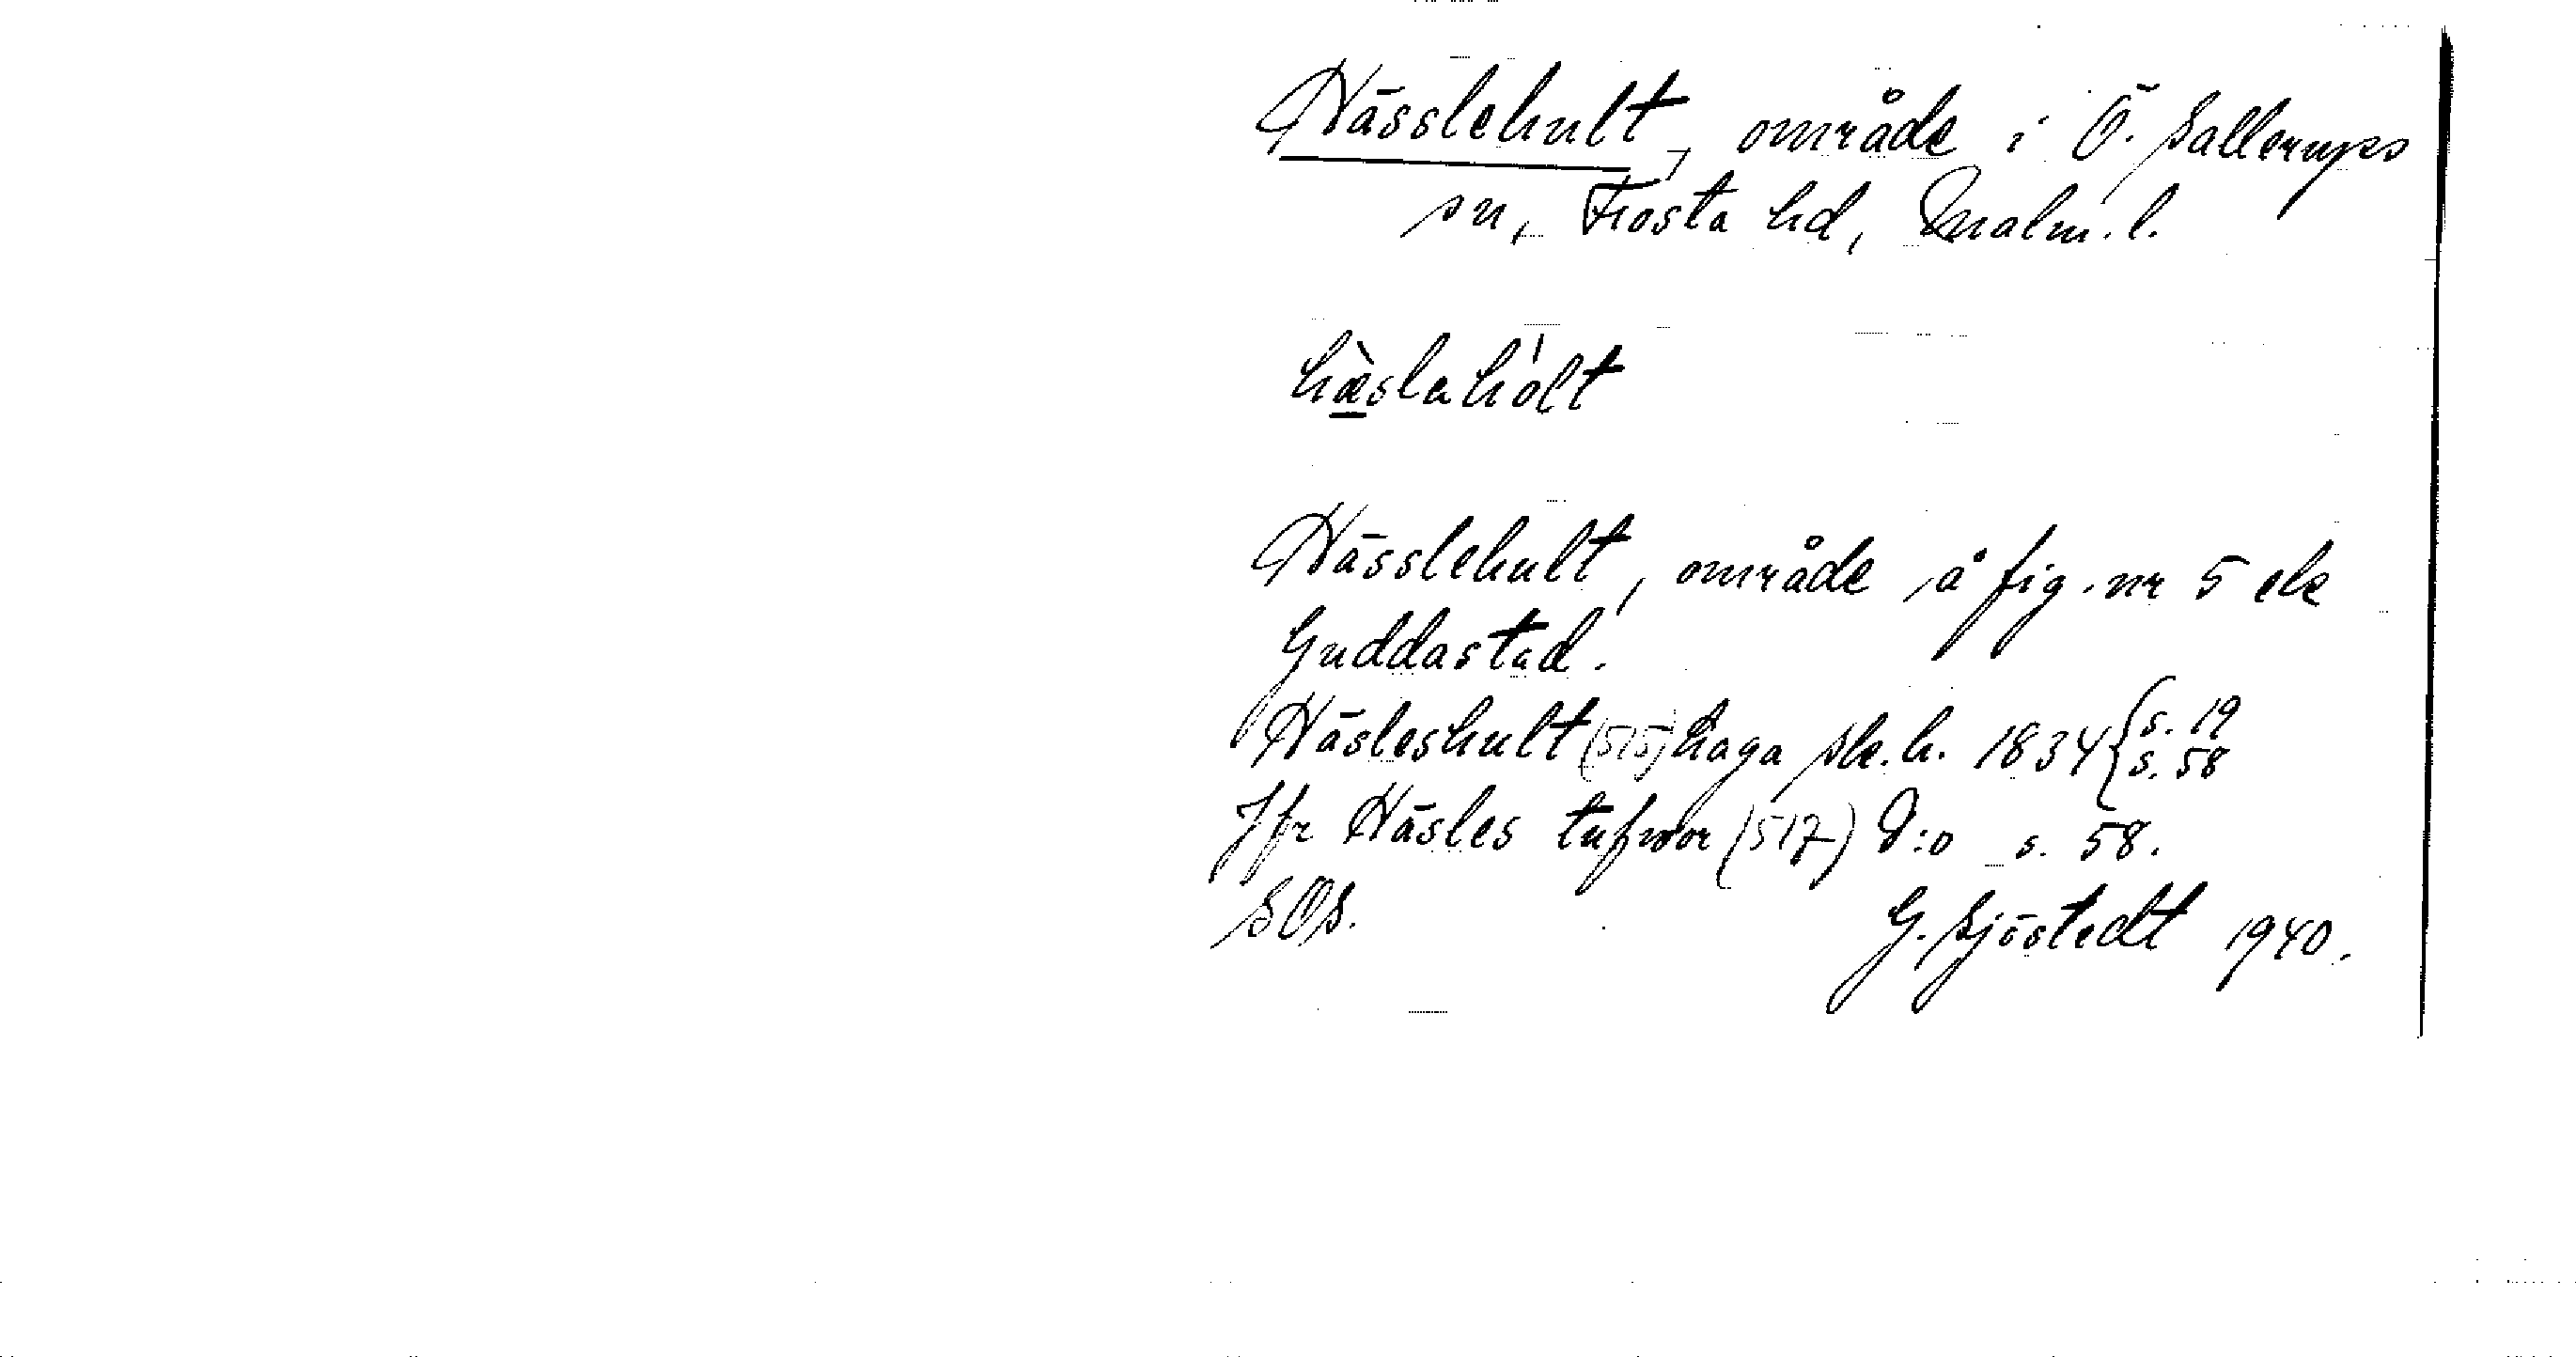 Hässlehult, område i Ö. Sallerups
sn, Frosta hd, Malm. l.
hæ̀slahólt
Hässlehult, område å fig. nr 5 ek
Guddastad.
Häsleshult (515) haga sk.h. 1834 { s. 19
s. 58
Jfr Häsles tufwor (517) D:o s. 58.
SOS. G. Sjöstedt 1940.